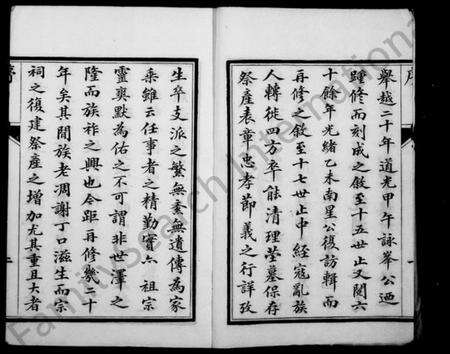 舉越二十年道光甲午詠峯公迺
踵修而刻成之敘至十五世止又閱六
十餘年光緒乙未南星公復訪輯而
再修之敘至十七世止中經寇亂族
人轉徙四方卒能清理塋墓保存
祭產表章忠孝節義之行詳攷
生卒支派之繁無紊無遺傳為家
乘雖云任事者之精勤實亦 祖宗
靈爽默為佑之不可謂非世澤之
隆而族祚之興也今距再修幾二十
年矣其間族老凋謝丁口滋生而宗
祠之復建祭產之增加尤其重且大者
序
二
FamilySearch International